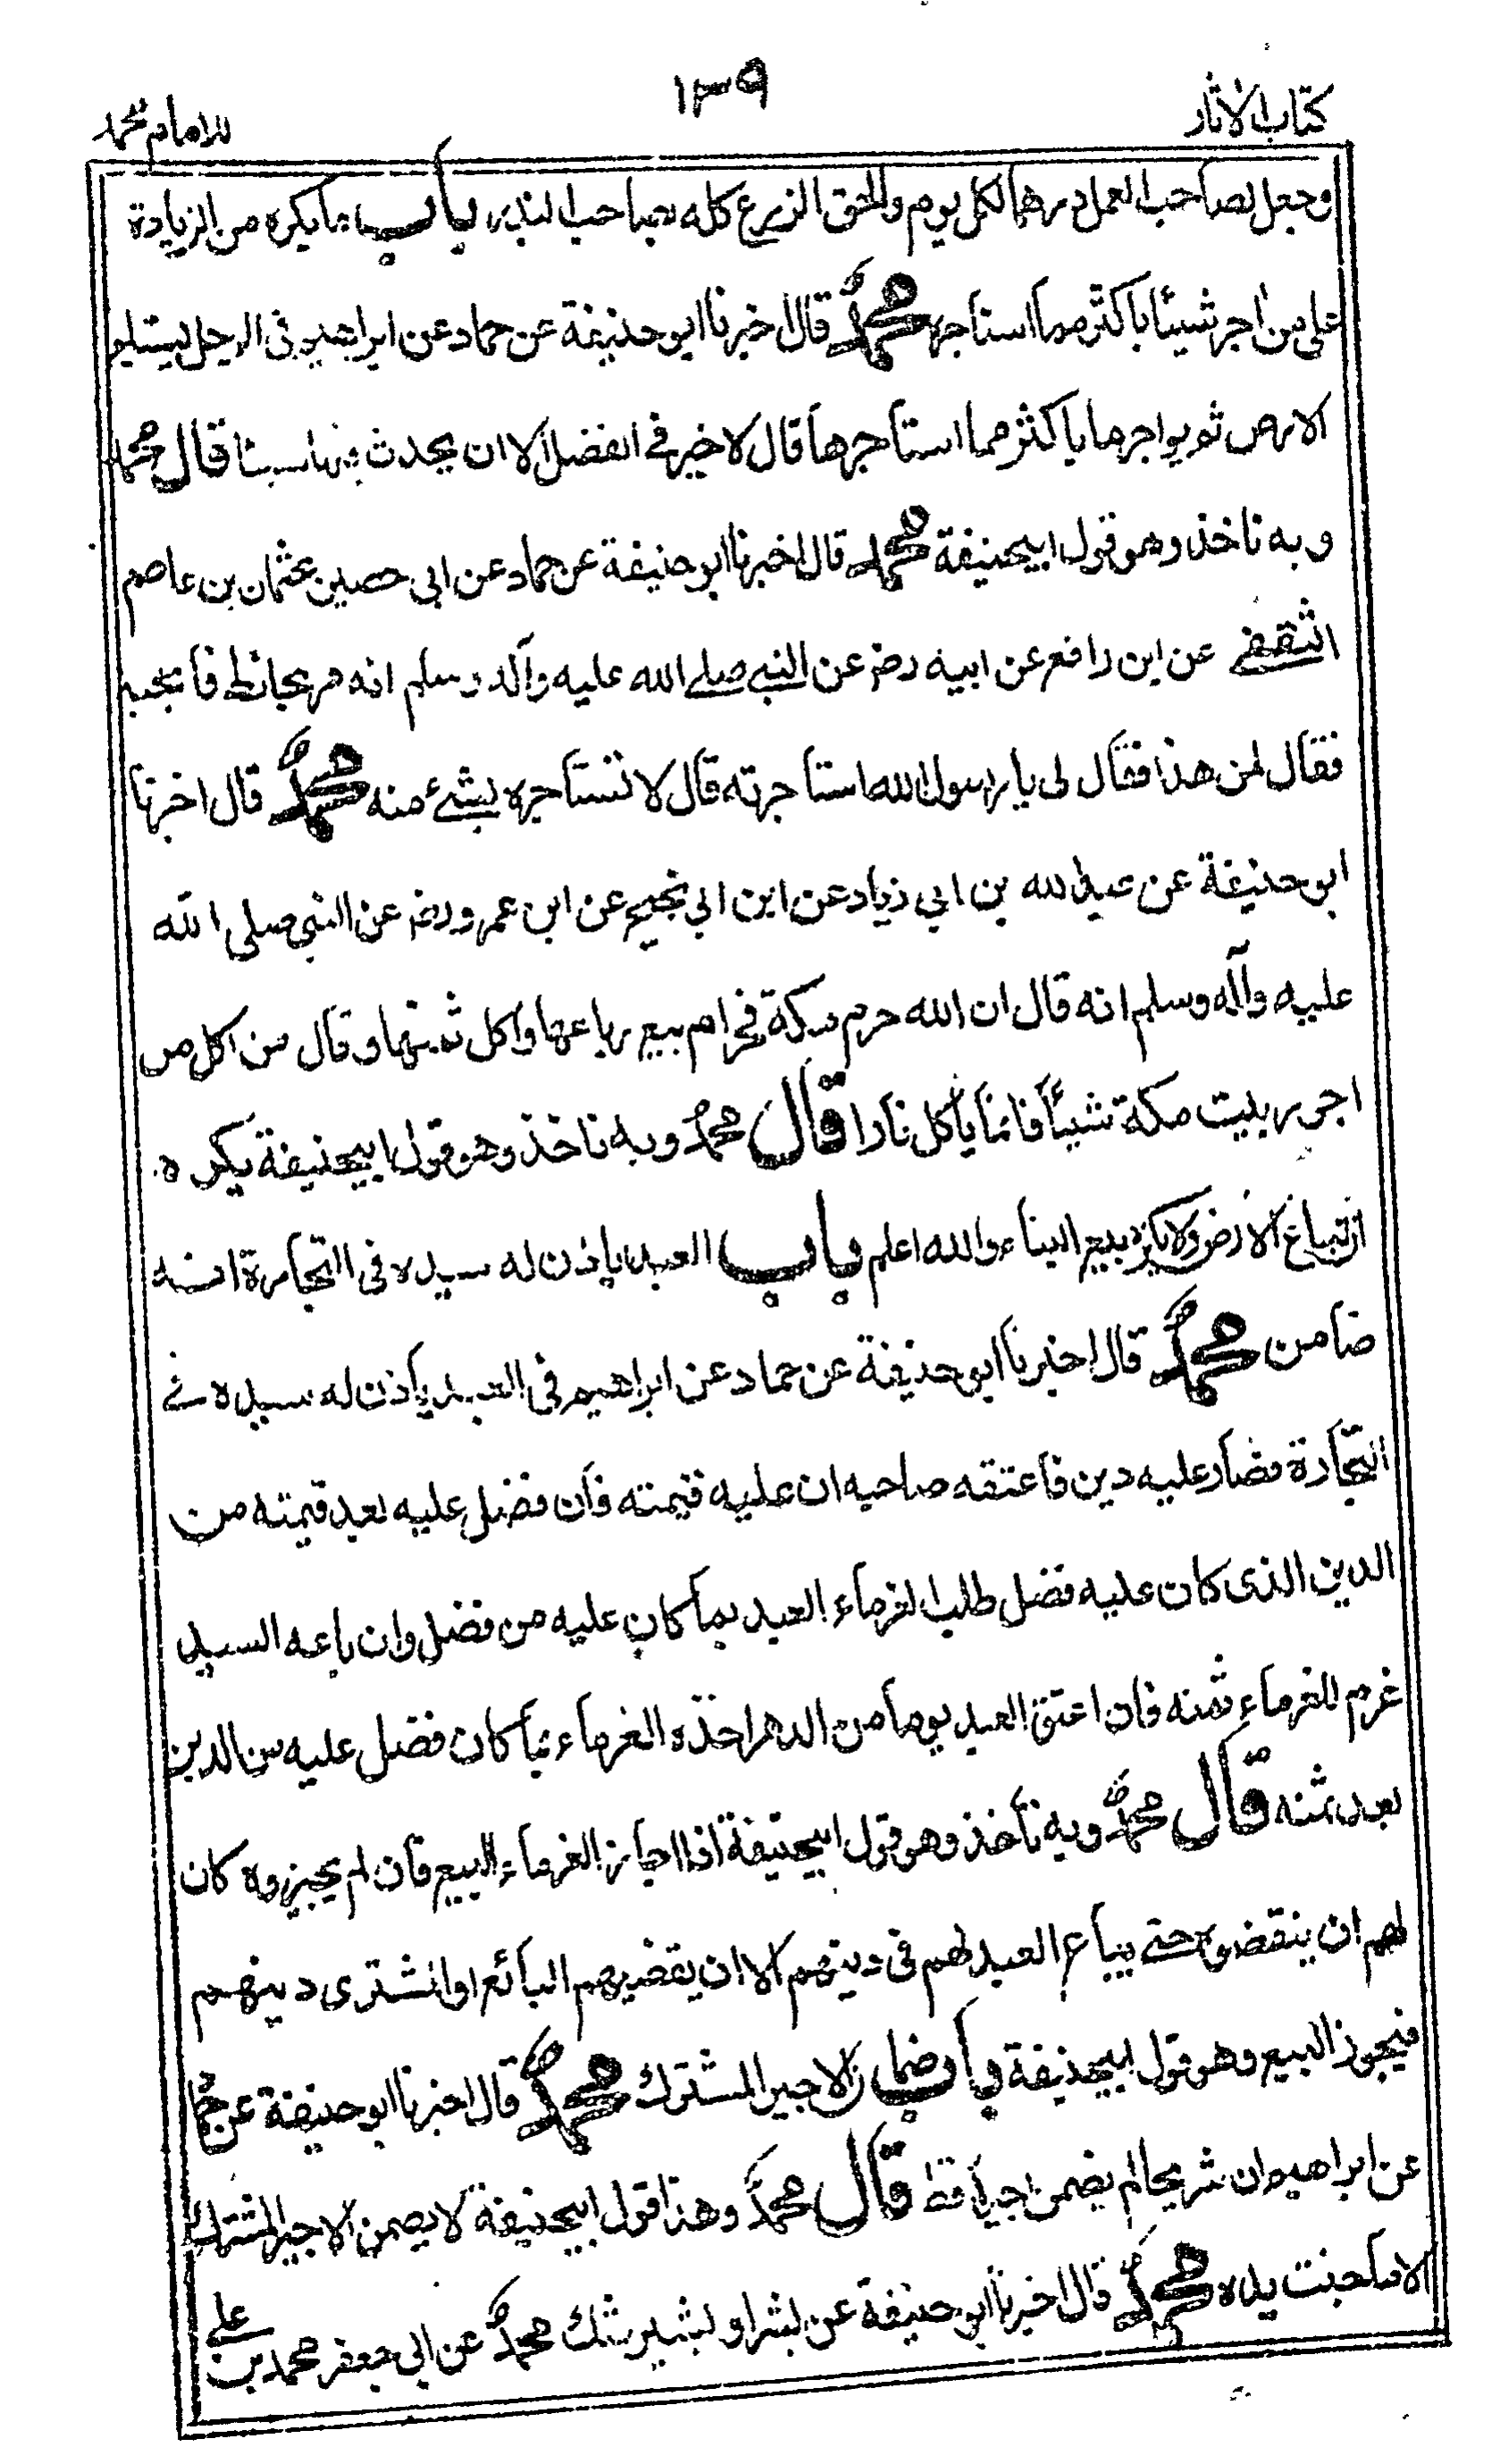 كتاب الآثار ١٣٩ للامام محمد
وجعل لصاحب العمل درهما لكل يوم والحق الزرع كله لصاحب البذر باب ما يكره من الزيادة
على من اجر شيئا باكثر مما استاجره محمد قال اخبرنا ابو حنيفة عن حماد عن ابراهيم فى الرجل يستاجر
الارض ثم يواجرها باكثر مما استاجرها قال لا خير فى الفضل الا ان يحدث فيها شيئا قال محمد
وبه ناخذ وهو قول ابيحنيفة محمد قال اخبرنا ابو حنيفة عن حماد عن ابي حصين عثمان بن عاصم
الثقفے عن ابن رافع عن ابيه رض عن النبے صلے الله عليه وآله وسلم انه مر بحائط فاعجبه
فقال لمن هذا فقال لى يا رسول الله استاجرته قال لا تستاجره بشئ منه محمد قال اخبرنا
ابو حنيفة عن عبيد الله بن ابي زياد عن ابن ابي نجيح عن ابن عمرو رض عن النبي صلى الله
عليه وآله وسلم انه قال ان الله حرم مكة فحرام بيع رباعها واكل ثمنها وقال من اكل من
اجور بيت مكة شيئا فانما ياكل نارا قال محمد وبه ناخذ وهو قول ابيحنيفة يكره
ان تباع الارض ولا يكره بيع البناء والله اعلم باب العبد ياذن له سيده فى التجارة انه
ضامن محمد قال اخبرنا ابو حنيفة عن حماد عن ابراهيم فى العبد ياذن له سيده فے
التجارة فصار عليه دين فاعتقه صاحبه ان عليه قيمته فان فضل عليه بعد قيمته من
الدين الذى كان عليه فضل طلب الغرماء العبد بما كان عليه من فضل وان باعه السيد
غرم للغرماء ثمنه فان اعتق العبد يوما من الدهر اخذه الغرماء بما كان فضل عليه من الدين
بعد ثمنه قال محمد وبه ناخذ وهو قول ابيحنيفة اذا اجاز الغرماء البيع فان لم يجيزوه كان
لهم ان ينقضوه حتے يباع العبد لهم فى دينهم الا ان يقضيهم البائع او المشترى دينهم
فيجوز البيع وهو قول ابيحنيفة باب ضمان الاجير المشترك محمد قال اخبرنا ابو حنيفة عن حماد
عن ابراهيم ان شريحا لم يضمن اجيرا قط قال محمد وهذا قول ابيحنيفة لا يضمن الاجير المشترك
الا ما جنت يده محمد قال اخبرنا ابو حنيفة عن بشر او بشير شك محمد عن ابي جعفر محمد بن علے